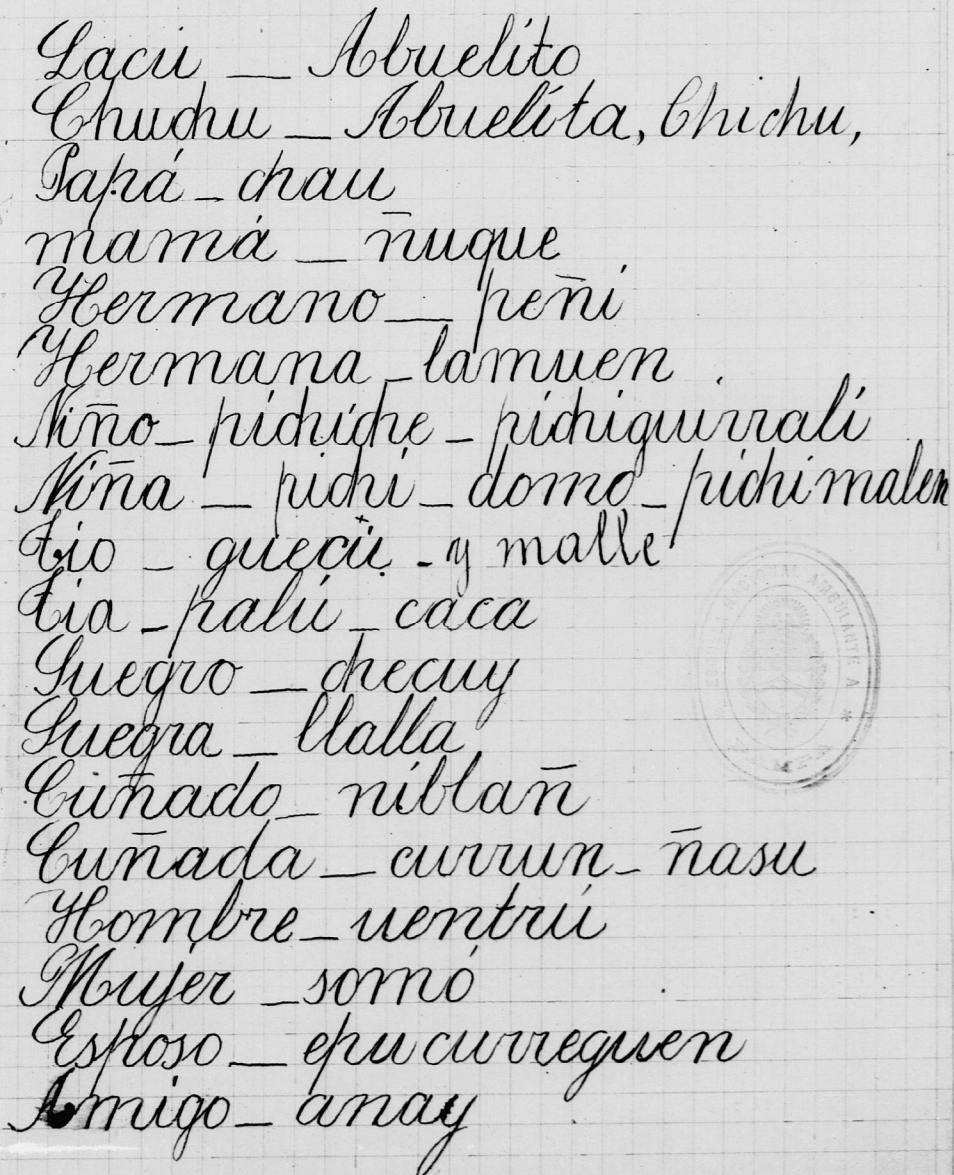 Lacú _ Abuelito
Chuchu _ Abuelita, Chichu,
Papá _ chau
mamá _ ñuque
Hermano _ peñi
Hermana _ lamuen
Niño _ pichiche _ pichiguirrali
Niña _ pichi _ domo _ pichimalen
Tio _ guecú _ y malle
Tia _ palú _ caca
Suegro _ checuy
Suegra _ llalla
Cuñado _ niblañ
Cuñada _ currun _ ñasu
Hombre _ uentrú
Mujer _ somó
Esposo _ epucurreguen
Amigo _ anay